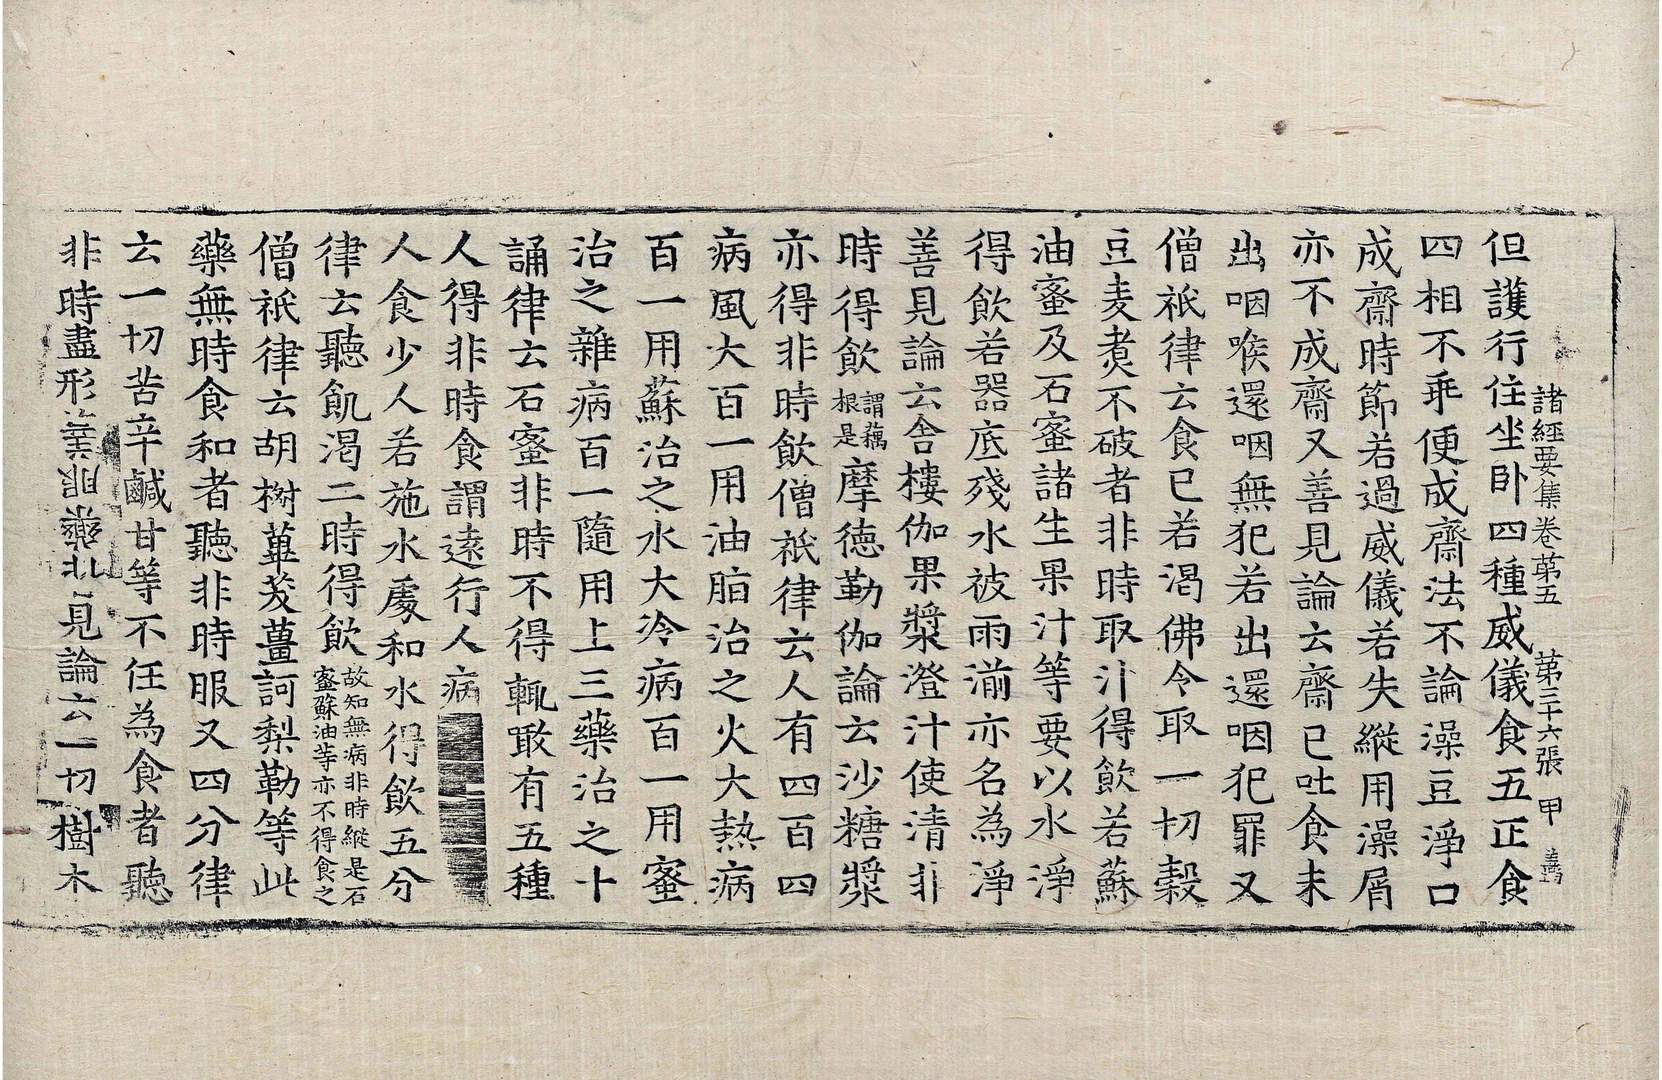 諸經要集卷第五 第三十六張 甲
但護行住坐卧四種威儀食五正食
四相不乖便成齋法不論澡豆淨口
成齋時節若過威儀若失縱用澡屑
亦不成齋又善見論云齋已吐食未
出咽喉還咽無犯若出還咽犯罪又
僧祇律云食已若渴佛令取一切穀
豆麦煑不破者非時取汁得飲若蘇
油蜜及石蜜諸生果汁等要以水淨
得飲若器底殘水被雨湔亦名為淨
善見論云舍樓伽果漿澄汁使清非
時得飲謂藕根是摩德勒伽論云沙糖漿
亦得非時飲僧祇律云人有四百四
病風大百一用油脂治之火大熱病
百一用蘇治之水大冷病百一用蜜
治之雜病百一隨用上三藥治之十
誦律云石蜜非時不得輒敢有五種
人得非時食謂遠行人病
人食少人若施水處和水得飲五分
律云聽飢渴二時得飲故知無病非時縱是石蜜蘇油等亦不得食之
僧祇律云胡椒蓽茇薑訶梨勒等此
藥無時食和者聽非時服又四分律
云一切苦辛鹹甘等不任為食者聽
非時盡形見論云一切樹木